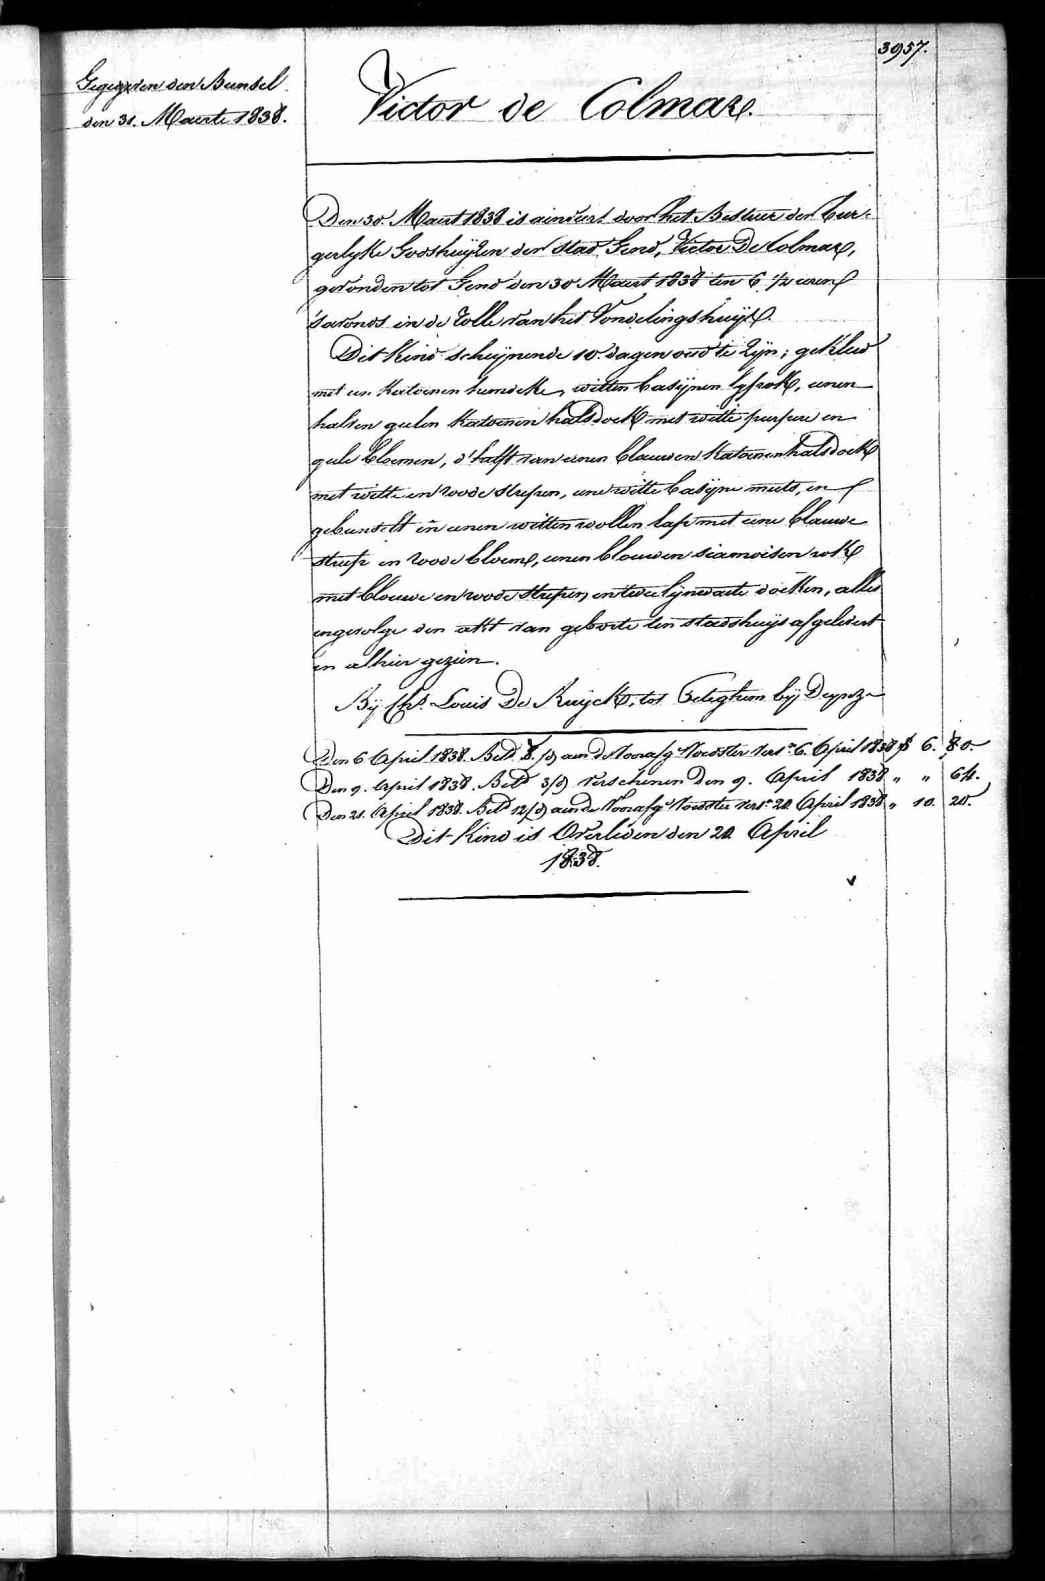 3957.
Gegeven den Bundel
den 31. Maerte 1838.
Victor de Colmar.
Den 30 Maert 1838 is aenveert door het Bestuer der bur-
gerlyke Godshuyzen der Stad Gend, Victor De Colmar,
gevonden tot Gend den 30 Maert 1838 ten 6 1/2 uren
'savonds in de Rolle van het Vondelingshuys.
Dit Kind scheynende 10 dagen oud te zyn; gekleed
met een Katoenen hemdeke, witten basynen lyfrok, eenen
halven geelen Katoenen halsdoek met witte purpere en
geele bloemen, d'helft van eenen blauwen Katoenen halsdoek
met witte en roode strepen, eene witte basyne muts, en
gebunselt in eenen witten wollen lap met eene blauwe
streep en roode bloem, eenen blauwen siamoisen rok
met blauwe en roode strepen, en twee lynwaete doeken, alles
ingevolge den akt van geboorte ten stadshuys afgelevert
en alhier gezien.
By Chs. Louis De Ruyck, tot Eeleghem by Deynze
Den 6 April 1838. Betd. 8 /d) aen de Voorsg. Voedster vers. 6. April 1838 f 6. 80.
Den 9. April 1838. Betd 3/d) verschenen den 9. April 1838 " " 64.
Den 21. April 1838. Betd 12/d) aen de Voorsg. Voedster vers. 20 April 1838 " 10. 20.
Dit Kind is Overleden den 20 April
1838.